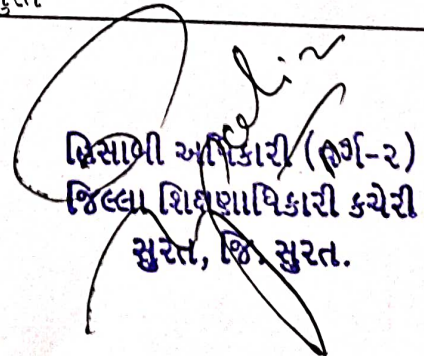 હિસાબી અધિકારી (વર્ગ-૨)
જિલ્લા શિક્ષણાધિકારી કચેરી
સુરત, જિ. સુરત.